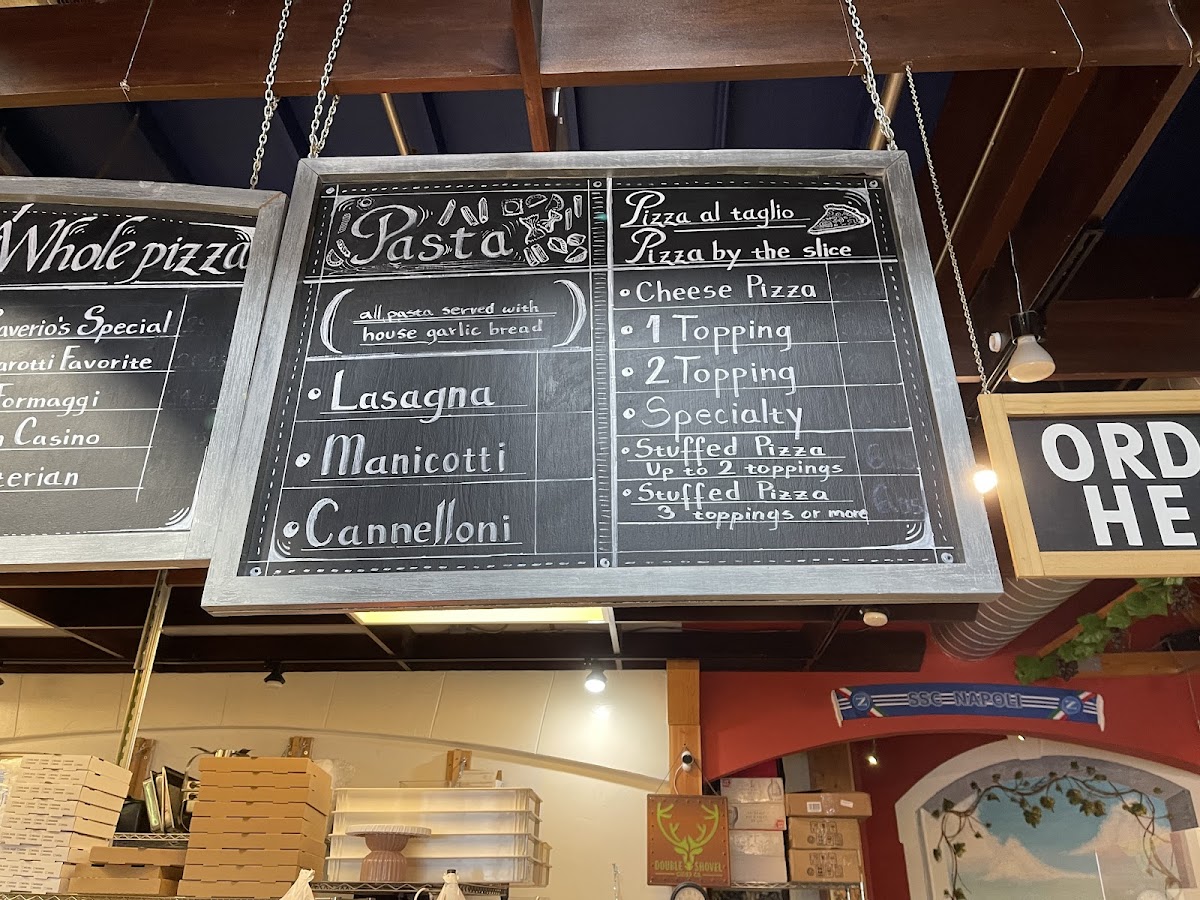 Whole pizza
averio's Special
arotti Favorite
Formaggi
Casino
terian
Pasta
(all pasta served with
house garlic bread)
• Lasagna
• Manicotti
• Cannelloni
Pizza al taglio
Pizza by the slice
• Cheese Pizza
• 1 Topping
• 2 Topping
• Specialty
• Stuffed Pizza
Up to 2 toppings
• Stuffed Pizza
3 toppings or more
ORD
HE
SSC NAPOLI
DOUBLE SHOVEL
CIDER CO.